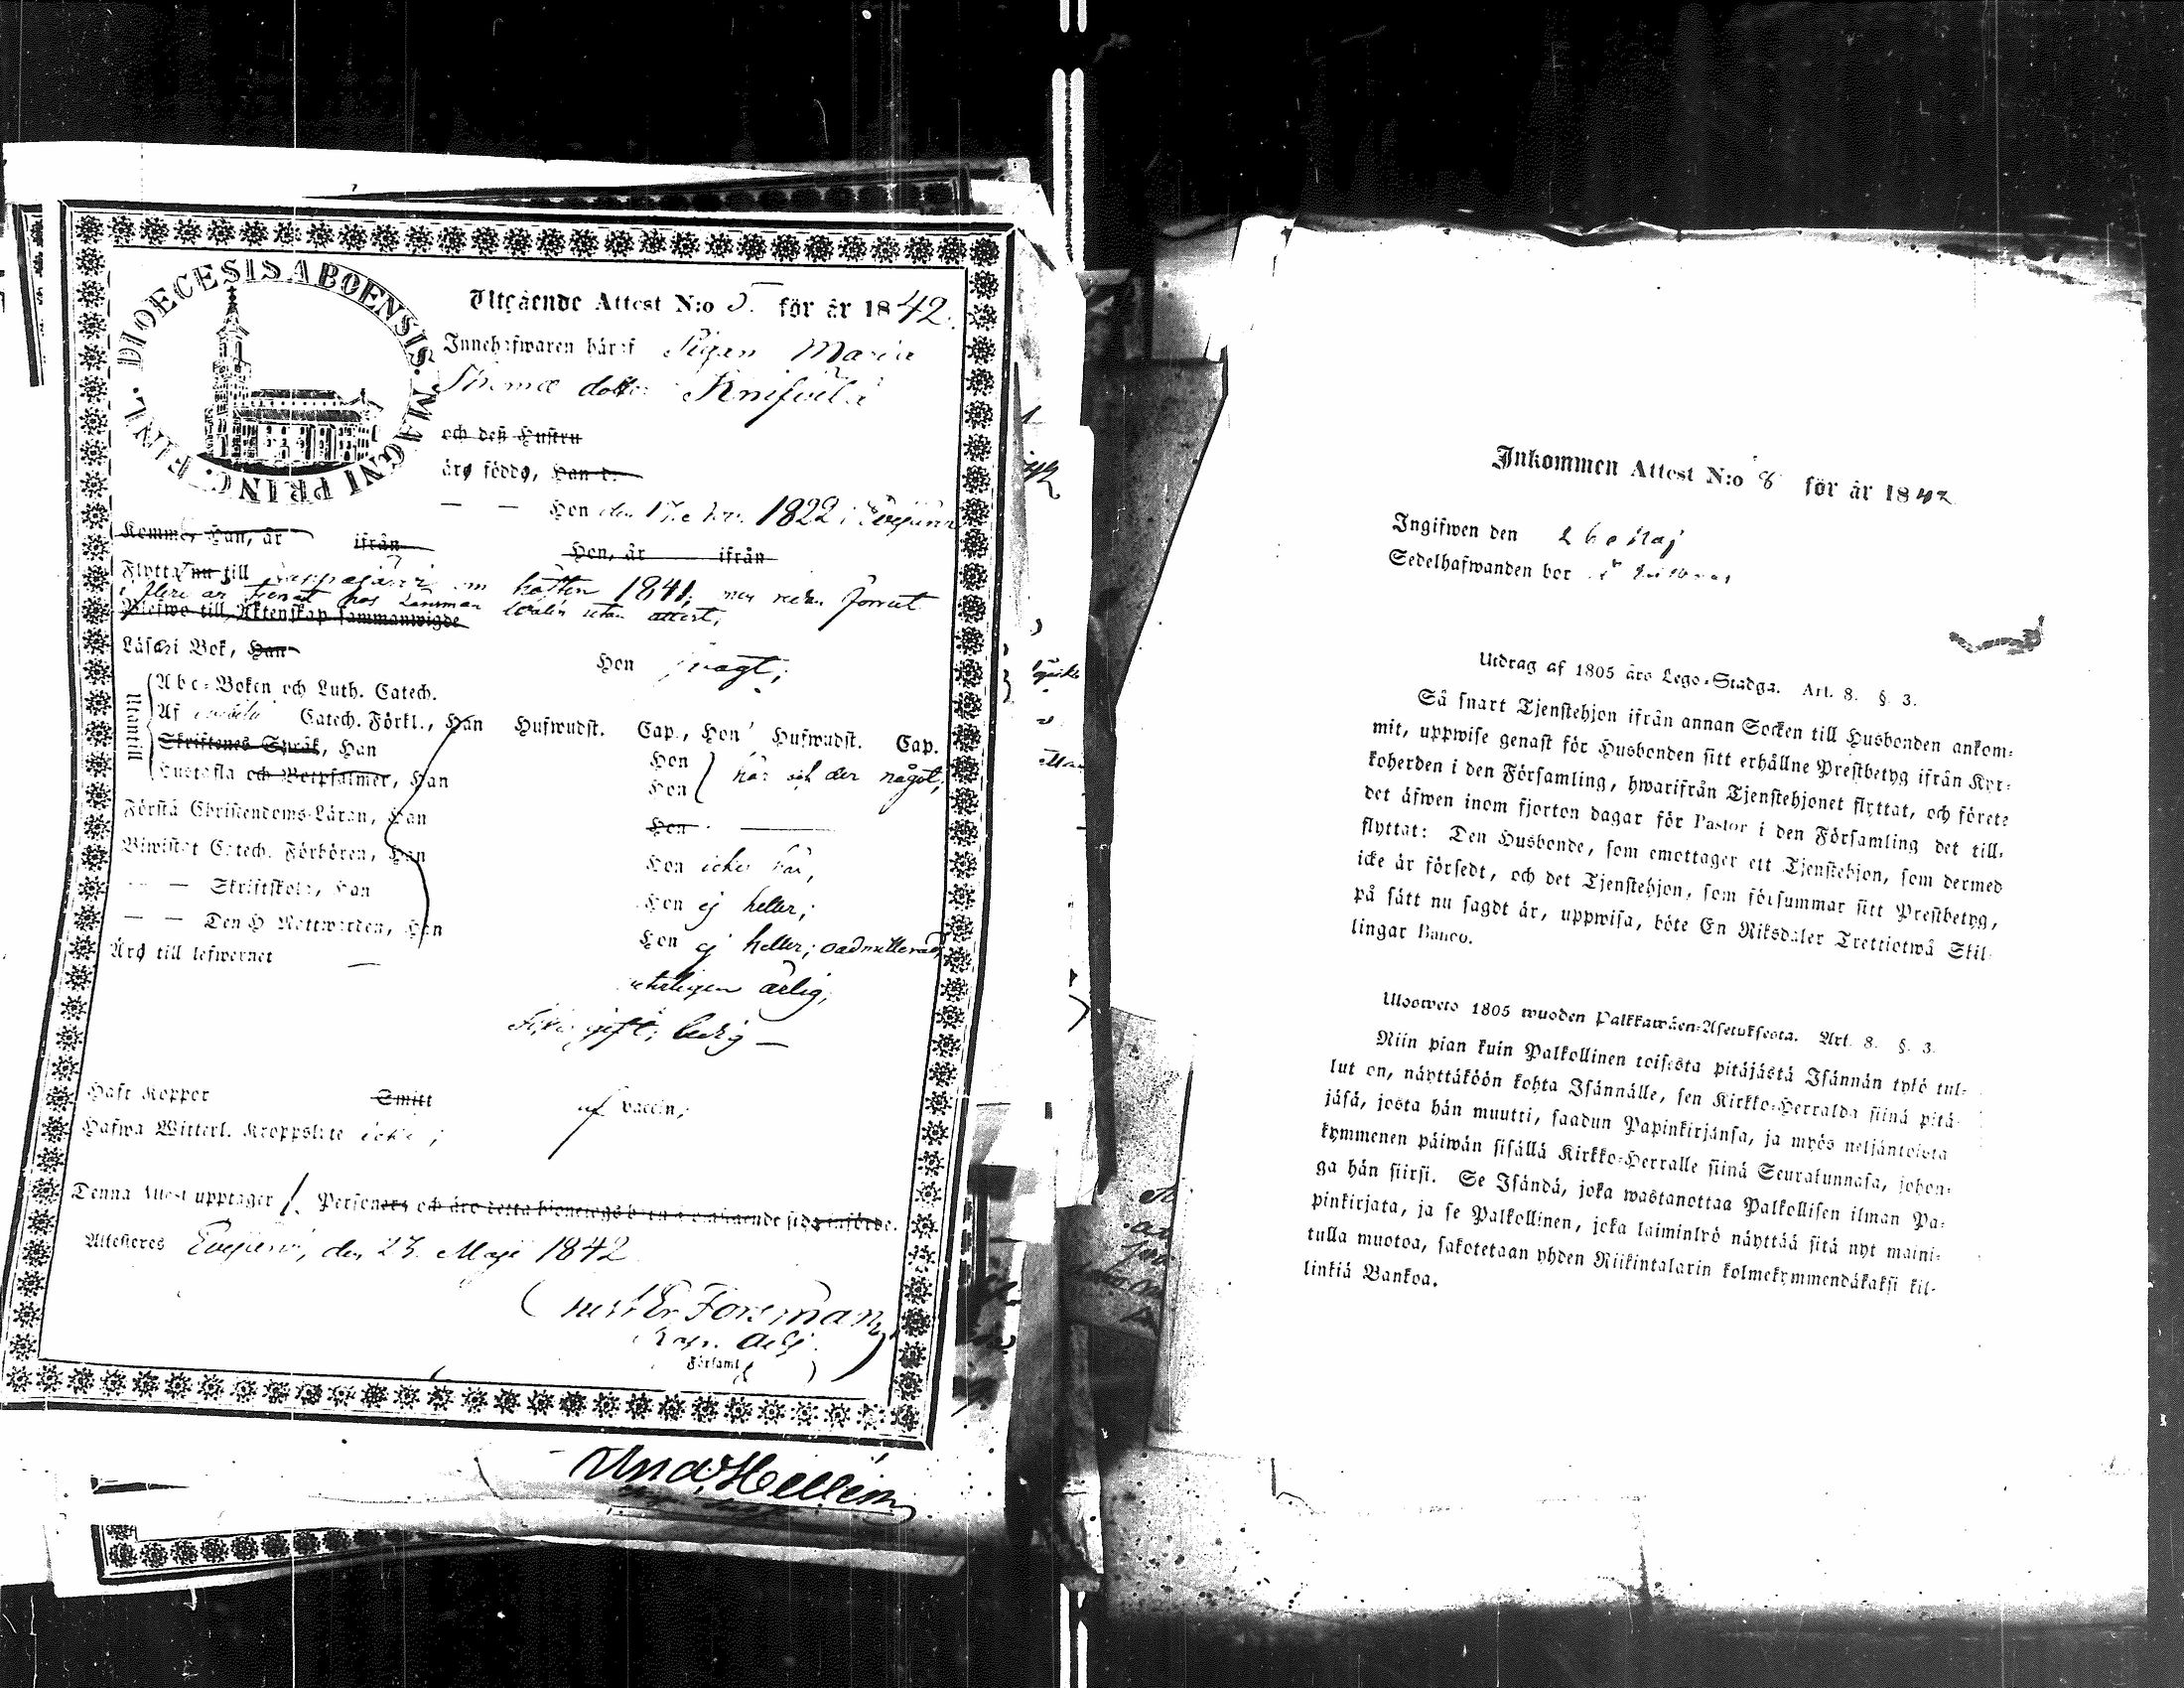 DIOECESIS ABOENSIS. MAGNI PRINC. FINL.
Utgående Attest N:o 5. för år 1842.
Innehafwaren häraf Pigan Maria
Thomæ dotter Knifvilä
och deß Hustru
äro födde, Han d.
— — Hon den 1822 i Evijärvi
Kommo Han, år ifrån Hon, år ifrån
Flytta nu till Lappajärvi om hösten 1841, men redan förrut
i flere år tjenat hos Länsman utan attest;
Blefwo till Äktenskap sammanwigde
Läsa i Bok, Han Hon svagt;
Utantill
Abc-Boken och Luth. Catech.
Af Catech. Förkl., Han Hufwudst. Cap., Hon Hufwudst. Cap.
Skriftenes Språk, Han Hon
Hustafla och Botpsalmer, Han Hon här och der något;
Första Christendoms-Läran, Han Hon
Biwistat Catech. Förhören, Han Hon icke här,
— — Skriftskola, Han Hon ej heller;
— — Den H Nattwarden, Han Hon ej heller; oadmitterad,
Äro till lefwernet — ärlig;
gift; ledig —
Haft Koppor Smitt af vaccin;
Hafwa Witterl. Kroppslyte icke;
Denna Attest upptager 1. Personer och äro detta bienewogs barn å omstående sida införde.
Attesteras Evijärvi, den 23. Maji 1842
Forsman
Församl.
Hellén
Inkommen Attest N:o 8 för år 1842
Ingifwen den 26 Maj
Sedelhafwanden bor
Utdrag af 1805 års Lego-Stadga. Art. 8. §. 3.
Så snart Tjenstehjon ifrån annan Socken till Husbonden ankom-
mit, uppwise genast för Husbonden sitt erhållne Prestbetyg ifrån Kyr-
koherden i den Församling, hwarifrån Tjenstehjonet flyttat, och förete
det äfwen inom fjorton dagar för Pastor i den Församling det till-
flyttat: Den Husbonde, som emottager ett Tjenstehjon, som dermed
icke är försedt, och det Tjenstehjon, som försummar sitt Prestbetyg,
på sätt nu sagdt är, uppwisa, böte En Riksdaler Trettiotwå Skil-
lingar Banco.
Ulosweto 1805 wuoden Palkkawäen-Asetuksesta. Art. 8. §. 3.
Niin pian kuin Palkollinen toisesta pitäjästä Isännän tykö tul-
lut on, näyttäköön kohta Isännälle, sen Kirkko-Herralda siinä pitä-
jäsä, josta hän muutti, saadun Papinkirjansa, ja myös neljäntoista
kymmenen päiwän sisällä Kirkko-Herralle siinä Seurakunnasa, johon-
ga hän siirsi. Se Isändä, joka wastanottaa Palkollisen ilman Pa-
pinkirjata, ja se Palkollinen, joka laiminlyö näyttää sitä nyt maini-
tulla muotoa, sakotetaan yhden Riikintalarin kolmekymmendäkaksi kil-
linkiä Bankoa.